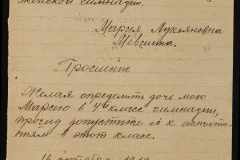 женской гимназии.
Марья Лукьяновна
Прошение
Желая определить дочь мою
Марью в V класс гимназии,
прошу допустить её к
в этот класс.
16 октября